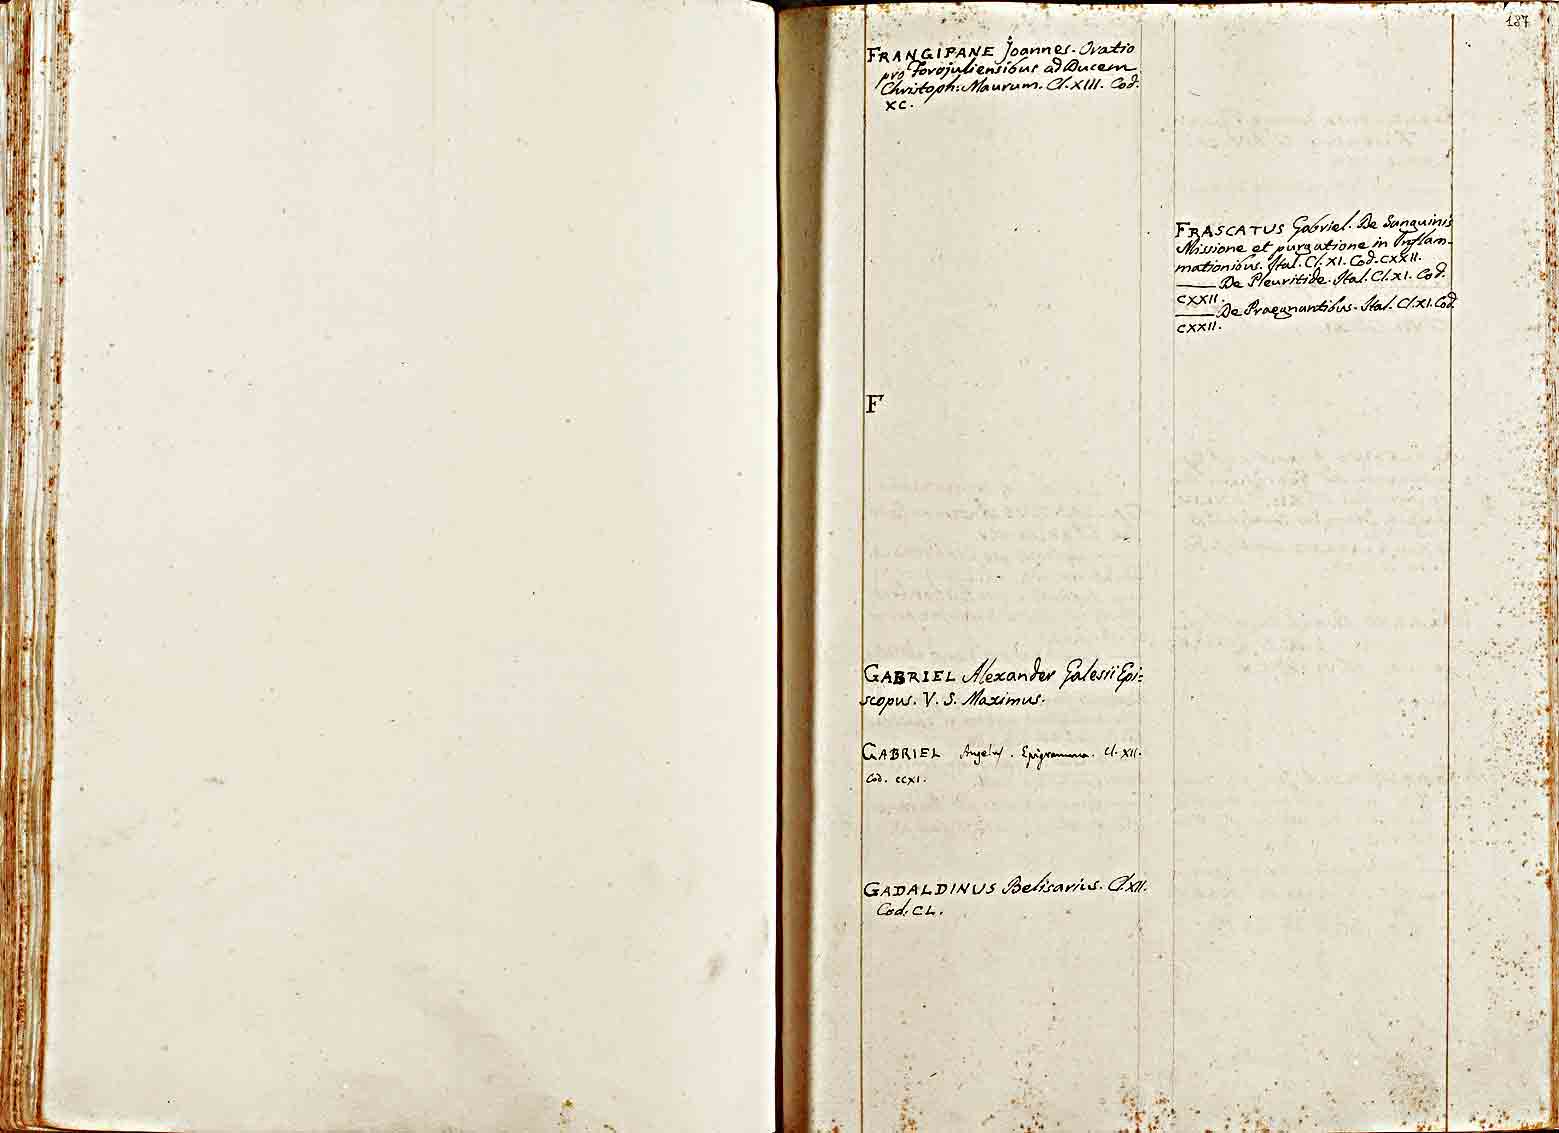 187
FRANGIPANE Joannes. Oratio
pro Forojuliensibus ad Ducem
Christoph: Maurum. Cl. XIII. Cod.
XC.
F
GABRIEL Alexander Galesii Epi=
scopus. V. S. Maximus.
GABRIEL Angelus. Epigramma. Cl. XII.
Cod. CCXI.
GADALDINUS Belisarius. Cl. XII.
Cod. CL.
FRASCATUS Gabriel. De Sanguinis
Missione et purgatione in Inflam-
mationibus. Ital. Cl. XI. Cod. CXXII.
——— De Pleuritide. Ital. Cl. XI. Cod.
CXXII.
——— De Praegnantibus. Ital. Cl. XI. Cod.
CXXII.